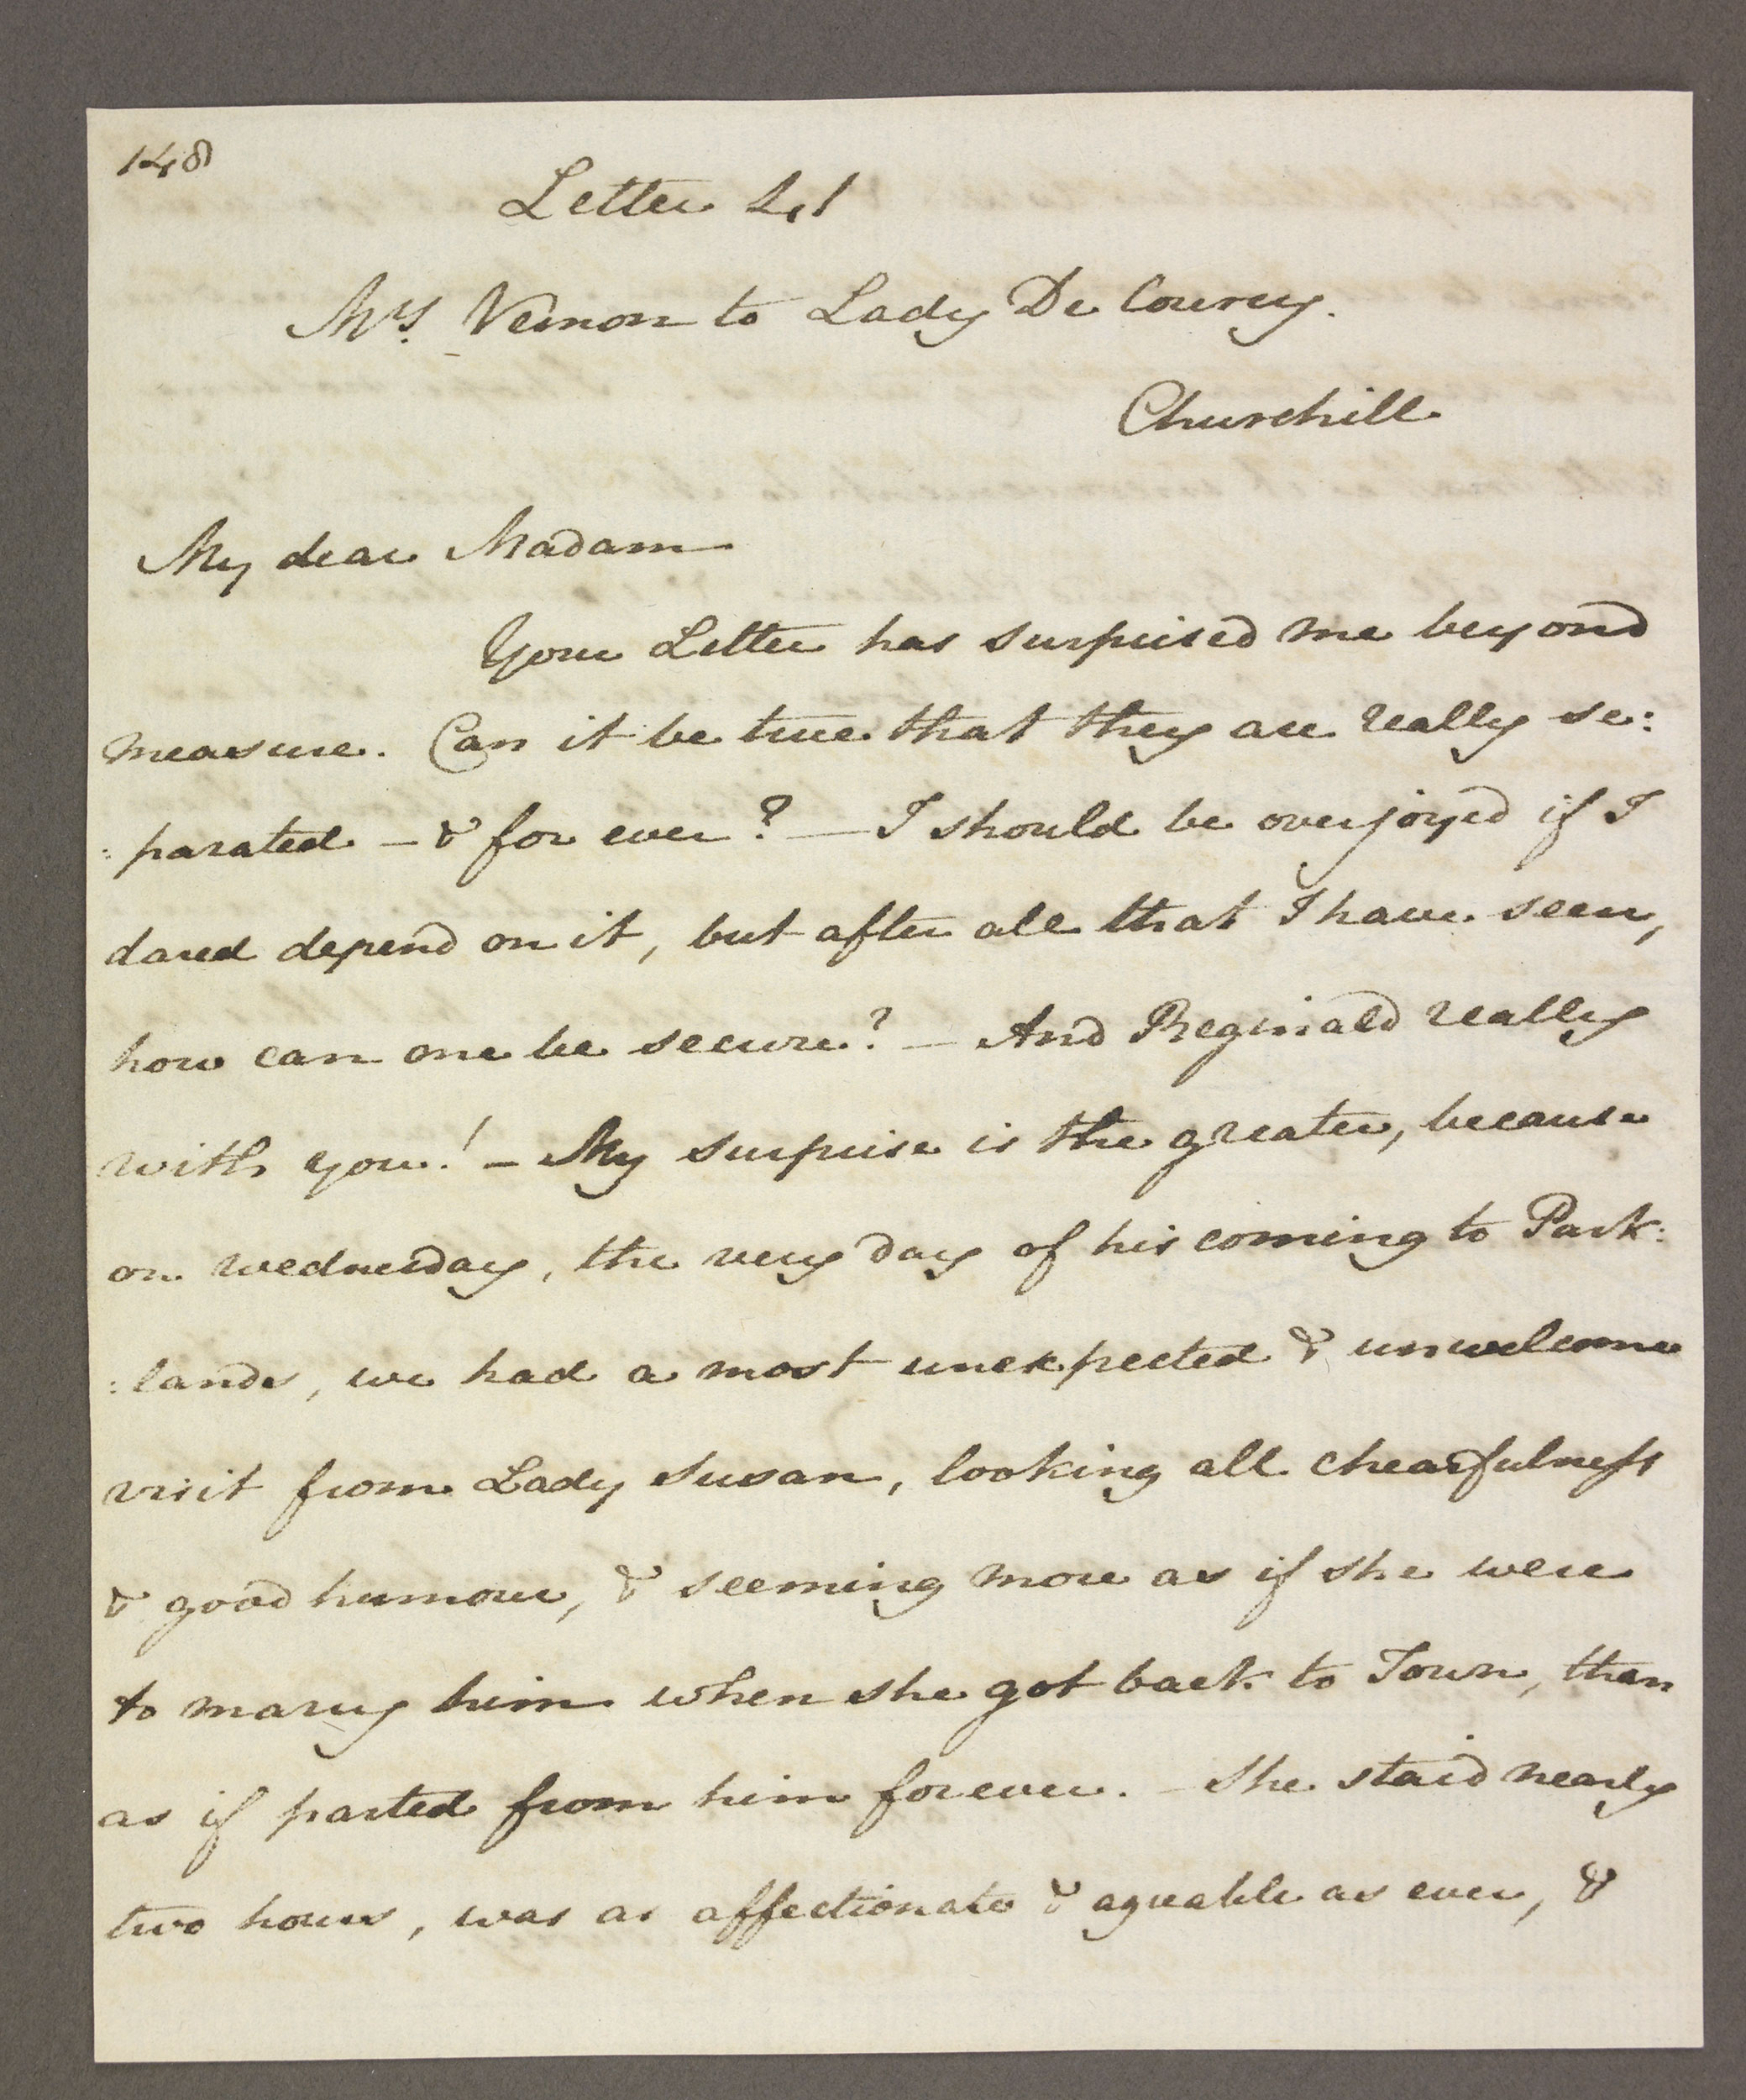 148
Letter 41
Mrs. Vernon to Lady De Courcy.
Churchill
My dear Madam
Your Letter has surprised me beyond
measure. Can it be true that they are really se:
:parated – & for ever? – I should be overjoyed if I
dared depend on it, but after all that I have seen,
how can one be secure? – And Reginald really
with you! – My surprise is the greater, because
on wednesday, the very day of his coming to Park:
:lands, we had a most unexpected & unwelcome
visit from Lady Susan, looking all chearfulness
& good humour, & seeming more as if she were
to marry him when she got back to Town, than
as if parted from him for ever. – She staid nearly
two hours, was as affectionate & agreable as ever, &